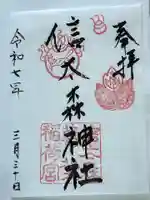 奉拝
信太森神社
令和七年
三月三十日